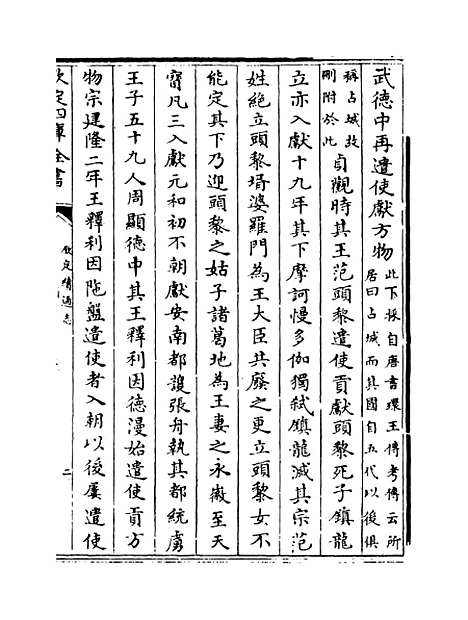 武德中再遣使獻方物此下採自唐書環王傳考傳云所
居曰占城而其國自五代以後俱
稱占城故
剛附於此貞觀時其王范頭黎遣使貢獻頭黎死子鎮龍
立亦入獻十九年其下摩訶慢多伽獨弒鎮龍滅其宗范
姓絶立頭黎壻婆羅門為王大臣共廢之更立頭黎女不
能定其下乃迎頭黎之姑子諸葛地為王妻之永徽至天
寳凡三入獻元和初不朝獻安南都護張舟執其都統虜
王子五十九人周顯德中其王釋利因德漫始遣使貢方
物宗建隆二年王釋利因陁盤遣使者入朝以後屢遣使
欽定四庫全書
欽定續通志
二